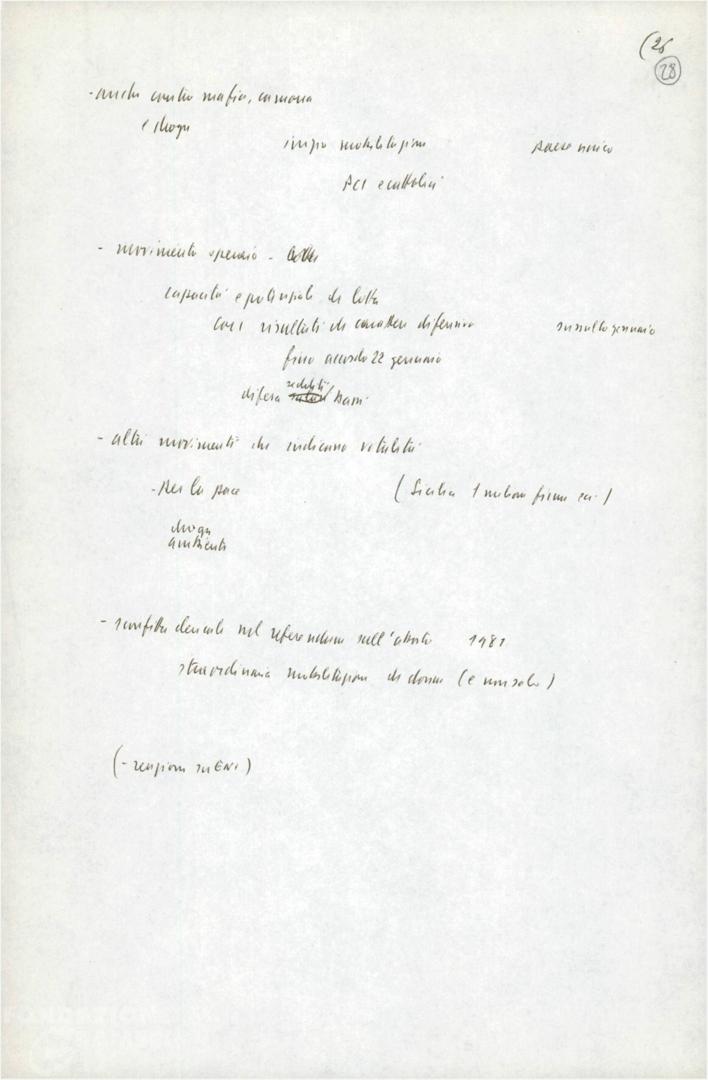 (26
28
- anche contro mafia, camorra
e droga
ampia mobilitazione
PCI e cattolici
- movimento operaio - lotta
capacità e potenziale di lotta
così risultati di carattere difensivo sussulto gennaio
fino accordo 22 gennaio
difesa redditi bassi
- altri movimenti che indicano vitalità
- per la pace (Sicilia 1 milione firme ecc.)
droga
ambiente
- sconfitta clericale nel referendum sull'aborto 1981
straordinaria mobilitazione di donne (e non solo)
(- reazione su ENI)